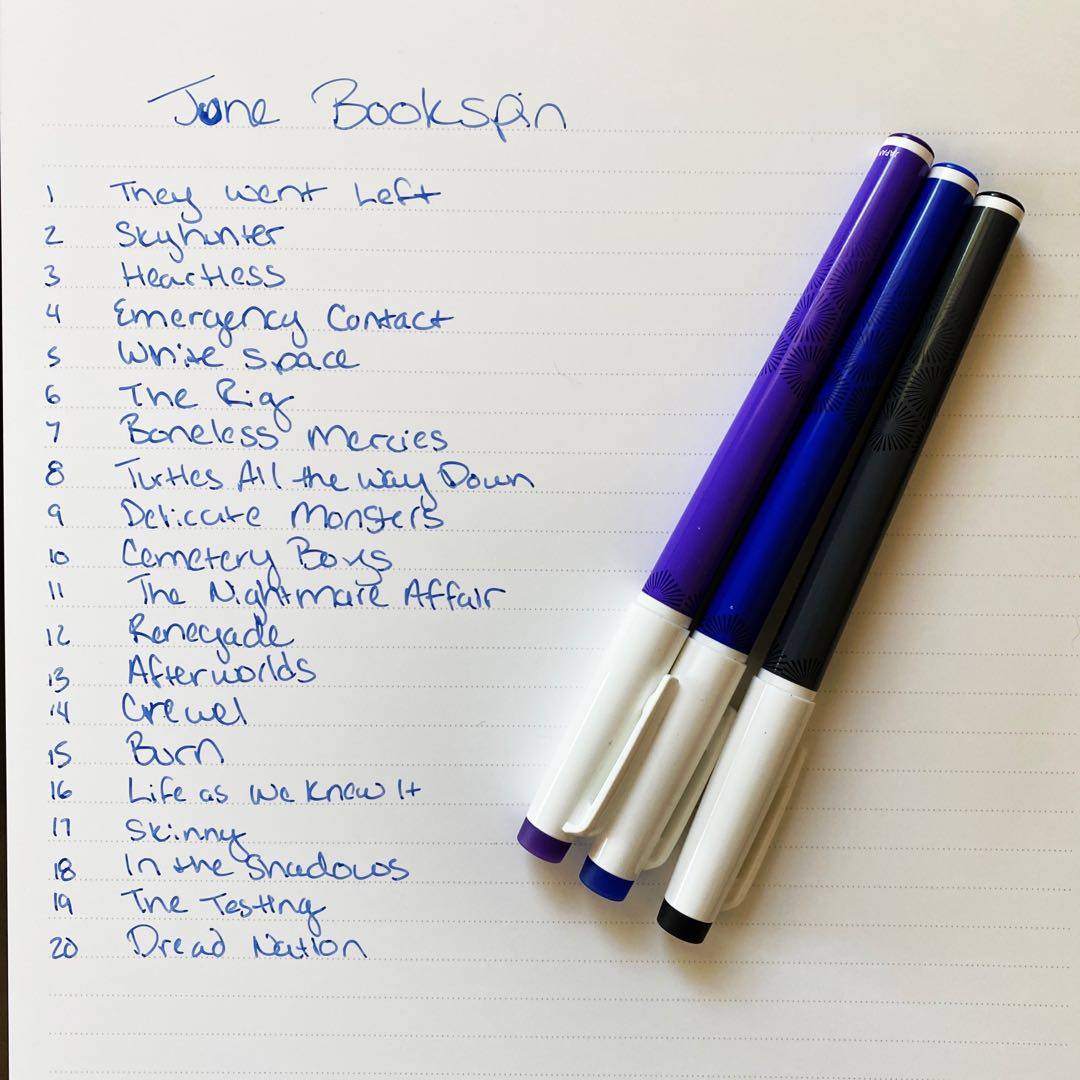 June Bookspin
1 They Went Left
2 Skyhunter
3 Heartless
4 Emergency Contact
5 White Space
6 The Rig
7 Boneless Mercies
8 Turtles All the Way Down
9 Delicate Monsters
10 Cemetery Boys
11 The Nightmare Affair
12 Renegade
13 Afterworlds
14 Crewel
15 Burn
16 Life as We Knew It
17 Skinny
18 In the Shadows
19 The Testing
20 Dread Nation